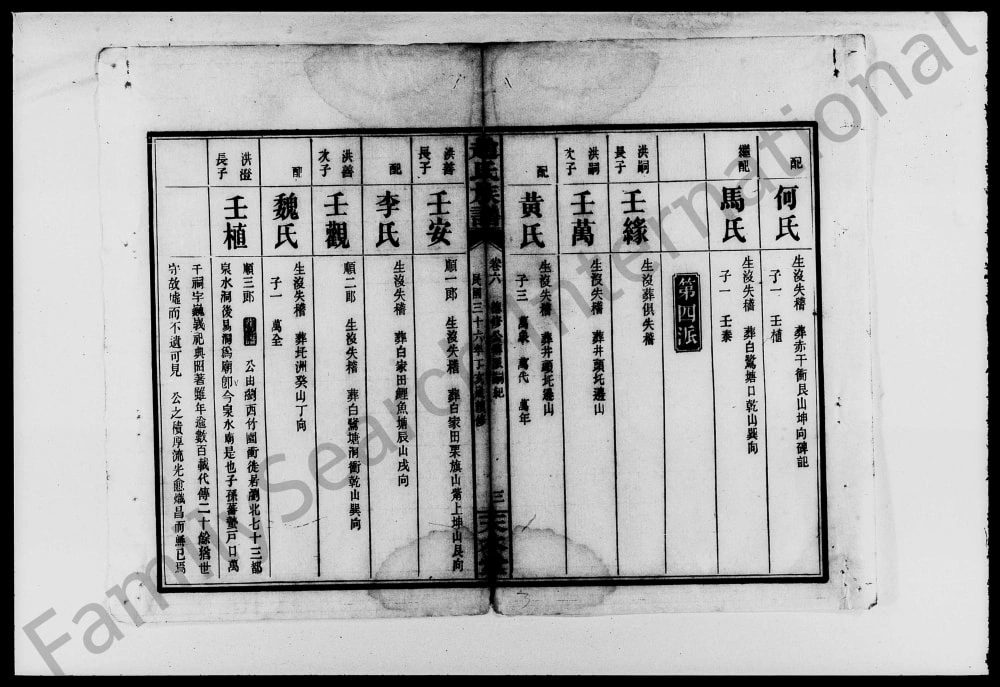 配
何氏
生沒失稽 葬赤干衝艮山坤向碑記
子一 壬植
繼配
馬氏
生沒失稽 葬白鷺塘口乾山巽向
子一 壬泰
第四派
洪嗣
長子
壬緣
生沒葬俱失稽
洪嗣
次子
壬萬
生沒失稽 葬井頭圫邊山
配
黃氏
生沒失稽 葬井頭圫邊山
子三 萬 萬代 萬年
氏族譜
卷六
民國三十六年丁亥
三
洪善
長子
壬安
順一郎 生沒失稽 葬白家田栗旗山 上坤山艮向
配
李氏
生沒失稽 葬白家田鯉魚塘辰山戌向
洪善
次子
壬觀
順二郎 生沒失稽 葬白鷺塘洞衝乾山巽向
配
魏氏
生沒失稽 葬圫洲癸山丁向
子一 萬全
洪澄
長子
壬植
順三郎 公由瀏西竹園衝徙居瀏北七十三都
泉水洞後易洞為廟卽今泉水廟是也子孫蕃蟄戶口萬
千祠宇巍峩祀典昭著雖年逾數百載代傳二十餘猶世
守故墟而不遺可見 公之積厚流光愈熾昌而 已焉
3
FamilySearch International